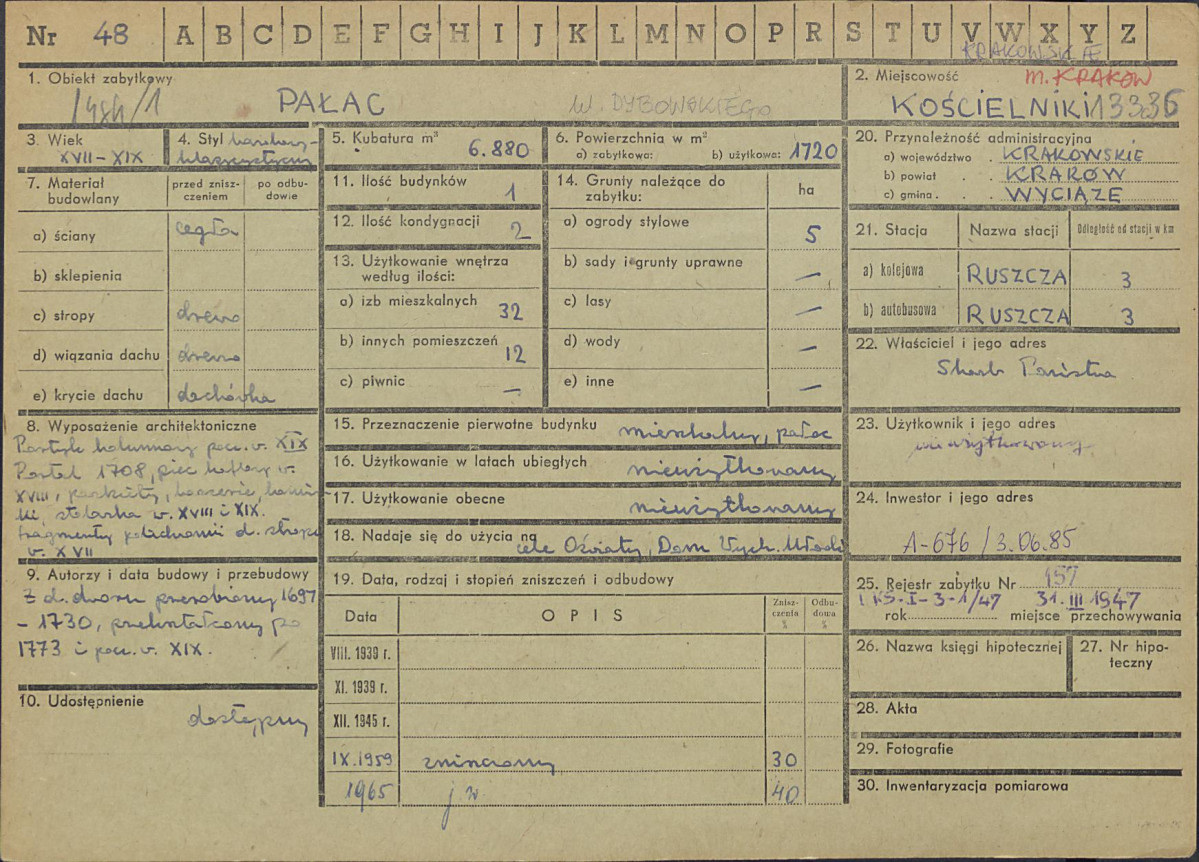 Nr 48 A B C D E F G H I J K L M N O P R S T U V W X Y Z
KRAKOWSKIE
1. Obiekt zabytkowy
PAŁAC
W. DYBOWSKIEGO
2. Miejscowość
m. KRAKÓW
KOŚCIELNIKI 13336
3. Wiek
XVII – XIX
4. Styl barokowy-
klasycystyczny
5. Kubatura m³
6.880
6. Powierzchnia w m²
a) zabytkowa: b) użytkowa: 1720
7. Materiał budowlany
przed zniszczeniem
po odbudowie
a) ściany cegła
b) sklepienia
c) stropy drewno
d) wiązania dachu drewno
e) krycie dachu dachówka
8. Wyposażenie architektoniczne
Portyk kolumnowy pocz. w. XIX
Portal 1708, piec kaflowy w.
XVIII, parkiety, boazerie, komin-
ki, stolarka w. XVIII i XIX.
fragmenty polichromii d. stropu
w. XVII
9. Autorzy i data budowy i przebudowy
Z d. dworu przerobiony 1697
– 1730, przekształcony po
1773 i pocz. w. XIX.
10. Udostępnienie
dostępny
11. Ilość budynków
1
12. Ilość kondygnacji
2
13. Użytkowanie wnętrza
według ilości:
a) izb mieszkalnych
32
b) innych pomieszczeń
12
c) piwnic –
14. Grunty należące do
zabytku:
ha
a) ogrody stylowe
5
b) sady i grunty uprawne –
c) lasy –
d) wody –
e) inne –
15. Przeznaczenie pierwotne budynku mieszkalny, pałac
16. Użytkowanie w latach ubiegłych nieużytkowany
17. Użytkowanie obecne nieużytkowany
18. Nadaje się do użycia na cele Oświaty, Dom Wych. Młodz.
19. Data, rodzaj i stopień zniszczeń i odbudowy
Data
O P I S
Zniszczenia %
Odbudowa %
VIII. 1939 r.
XI. 1939 r.
XII. 1945 r.
IX.1959 zniszczony 30
1965 j.w. 40
20. Przynależność administracyjna
a) województwo . KRAKOWSKIE
b) powiat . . KRAKÓW
c) gmina . . . WYCIĄŻE
21. Stacja
Nazwa stacji
Odległość od stacji w km
a) kolejowa RUSZCZA 3
b) autobusowa RUSZCZA 3
22. Właściciel i jego adres
Skarb Państwa
23. Użytkownik i jego adres
nieużytkowany
24. Inwestor i jego adres
A-676 / 3.06.85
25. Rejestr zabytku Nr 157
I KS-I-3-1/47 31.III 1947
rok miejsce przechowywania
26. Nazwa księgi hipotecznej
27. Nr hipoteczny
28. Akta
29. Fotografie
30. Inwentaryzacja pomiarowa